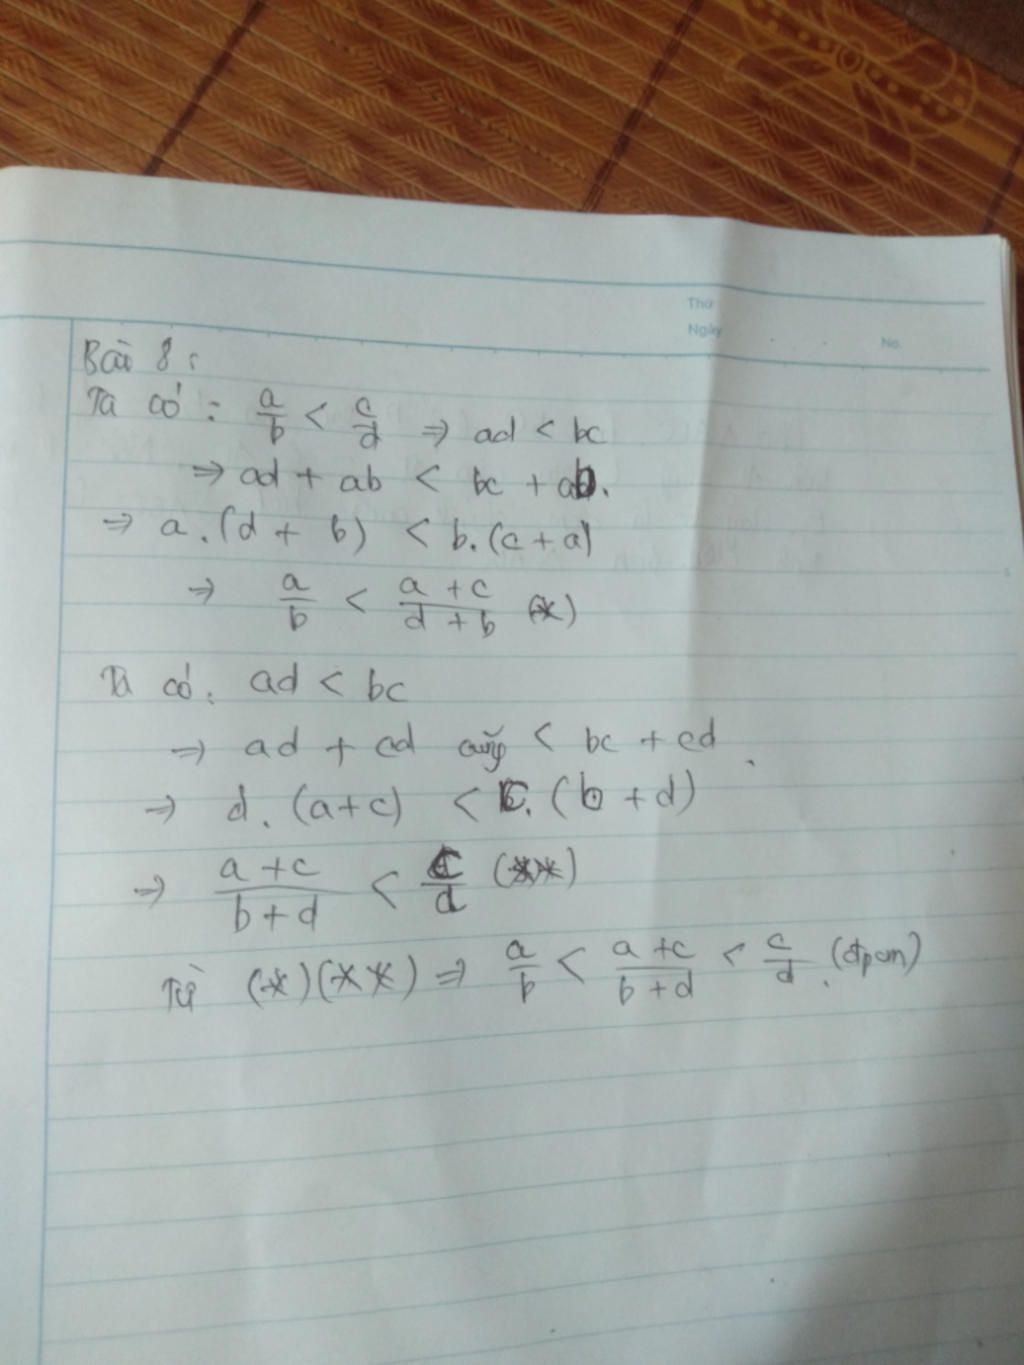 Thứ
Ngày No.
Bài 8:
Ta có: a/b < c/d => ad < bc
=> ad + ab < bc + ab.
=> a.(d + b) < b.(c + a)
=> a/b < (a + c)/(d + b) (*)
Ta có: ad < bc
=> ad + cd < bc + cd.
=> d.(a+c) < c.(b + d)
=> (a + c)/(b + d) < c/d (**)
Từ (*)(**) => a/b < (a + c)/(b + d) < c/d. (đpcm)